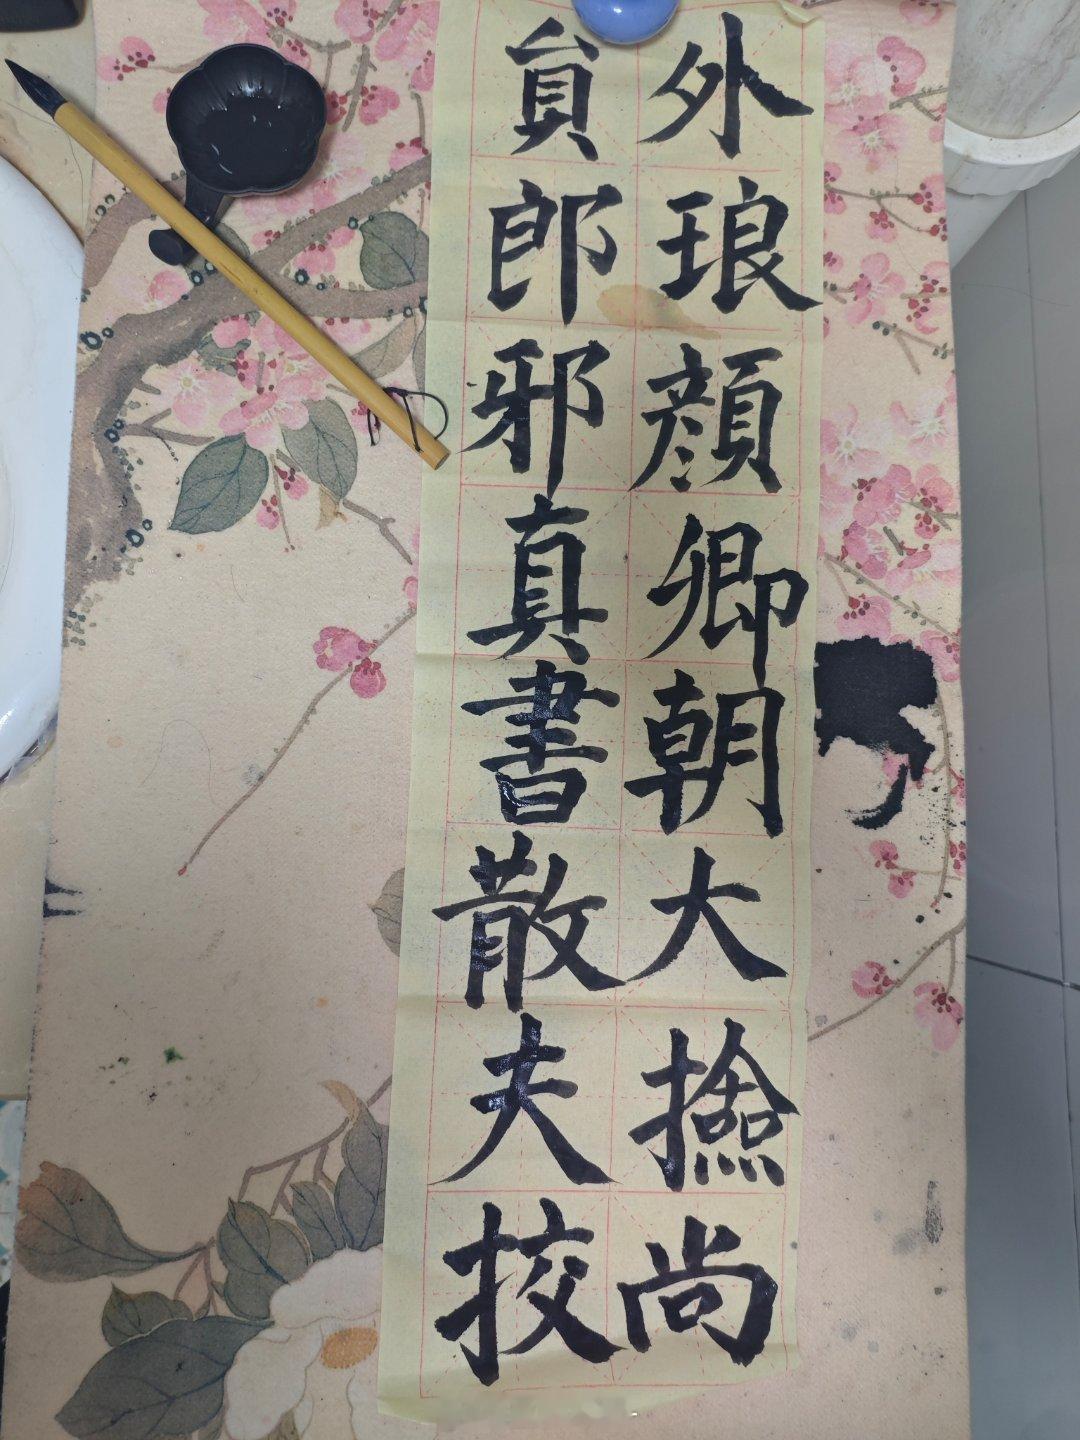 貟外
郎琅
邪顔
真卿
書朝
散大
夫撿
挍尚